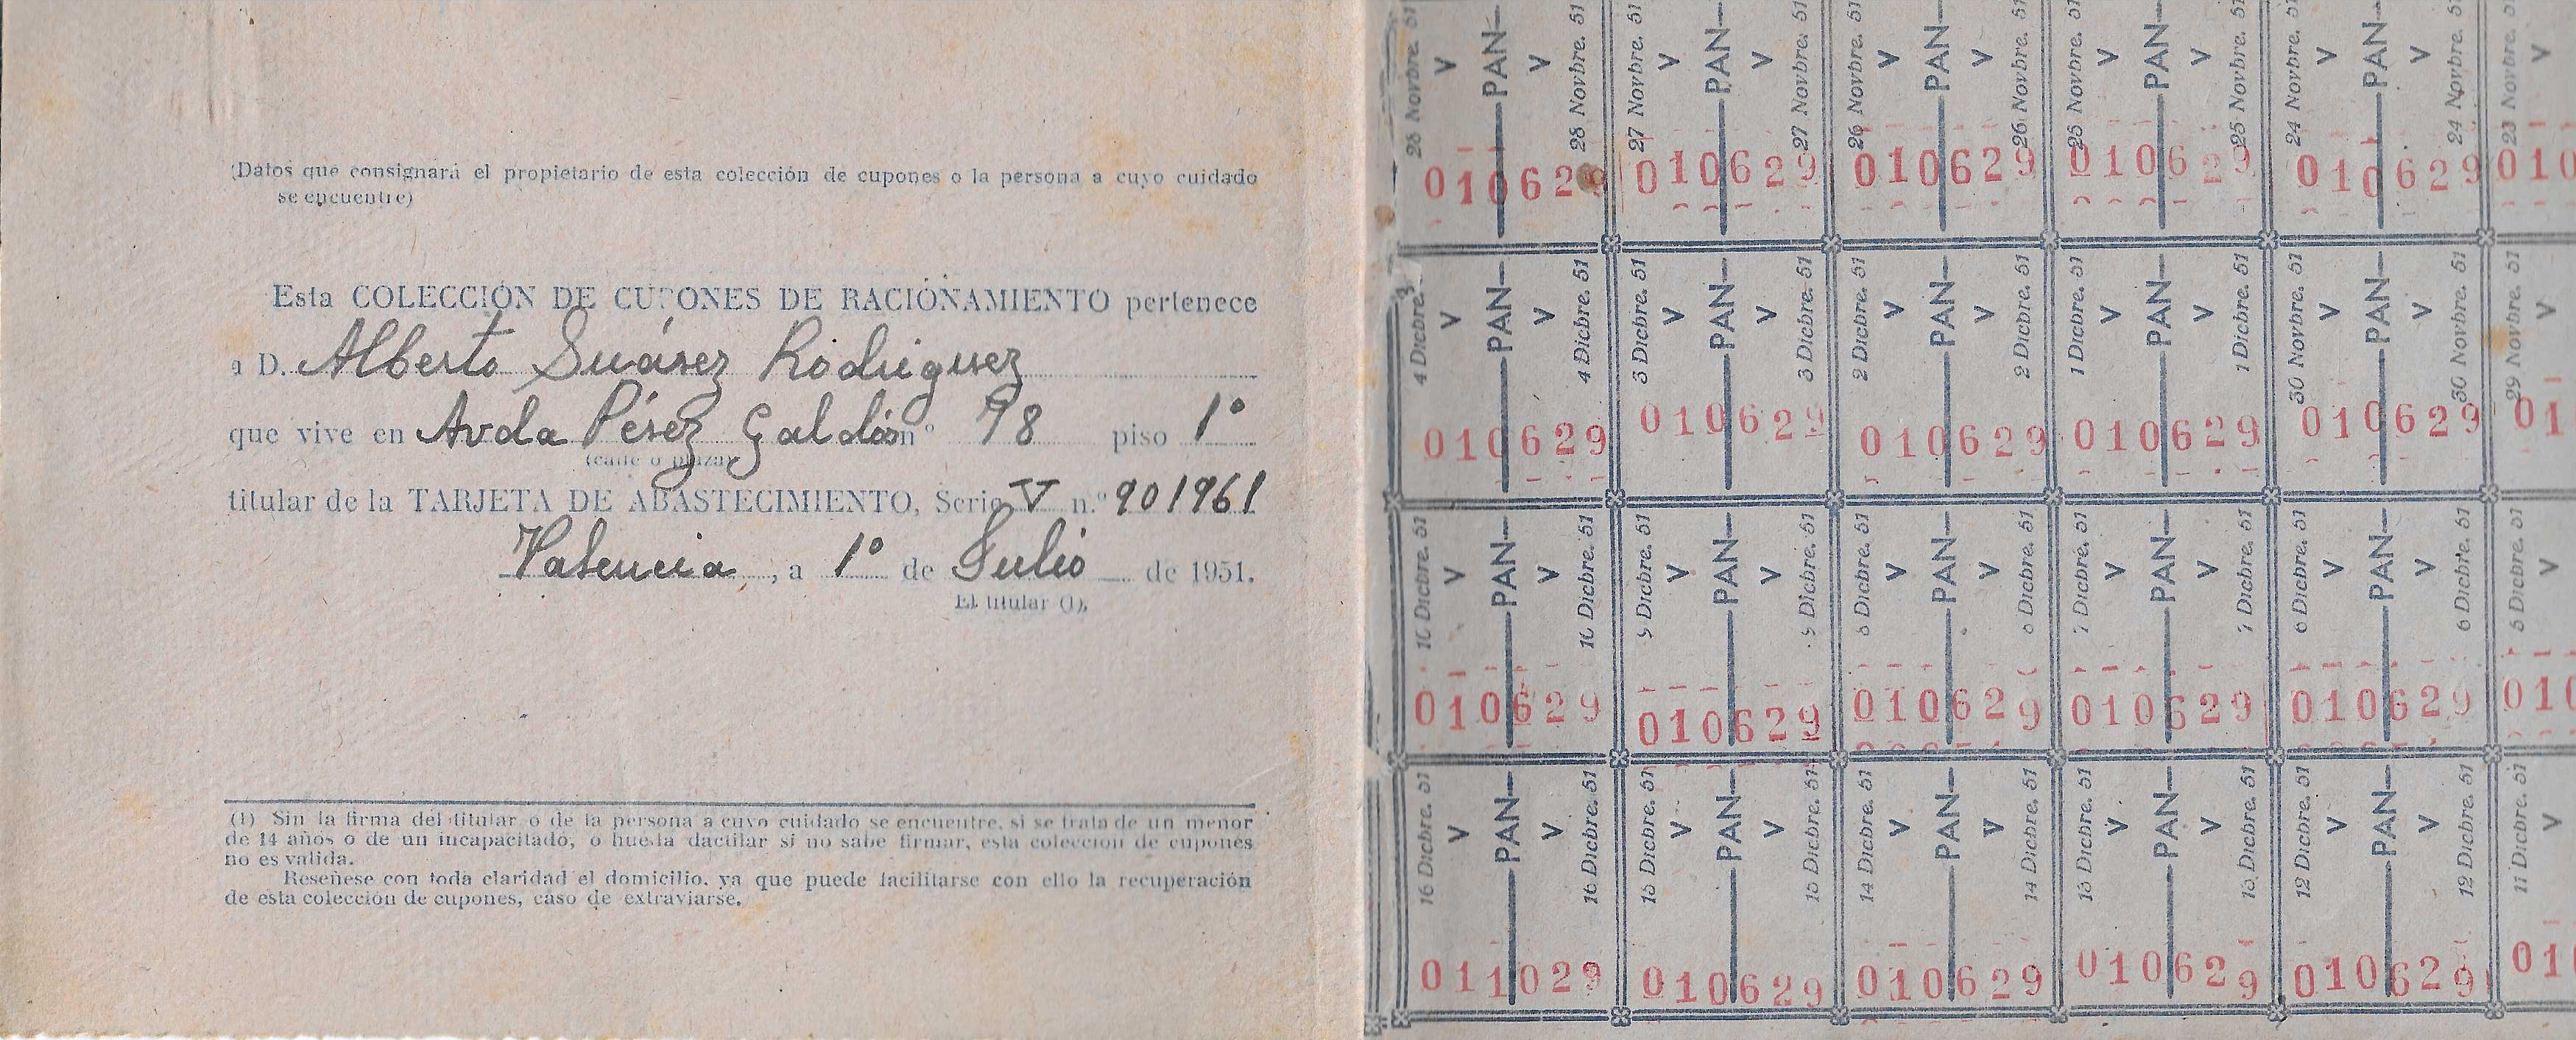 (Datos que consignará el propietario de esta colección de cupones o la persona a cuyo cuidado
se encuentre)
Esta COLECCIÓN DE CUPONES DE RACIONAMIENTO pertenece
a D. Alberto Suárez Rodriguez
que vive en Avda Pérez Galdós n.º 98 piso 1º
(calle o plaza)
titular de la TARJETA DE ABASTECIMIENTO, Serie V n.º 901961
Valencia, a 1º de Julio de 1951.
El titular (1),
(1) Sin la firma del titular o de la persona a cuyo cuidado se encuentre, si se trata de un menor
de 14 años o de un incapacitado, o huella dactilar si no sabe firmar, esta colección de cupones
no es valida.
Reséñese con toda claridad el domicilio, ya que puede facilitarse con ello la recuperación
de esta colección de cupones, caso de extraviarse.
28 Novbre. 51 V PAN V 28 Novbre. 51 010629
27 Novbre. 51 V PAN V 27 Novbre. 51 010629
26 Novbre. 51 V PAN V 26 Novbre. 51 010629
25 Novbre. 51 V PAN V 25 Novbre. 51 010629
24 Novbre. 51 V PAN V 24 Novbre. 51 010629
23 Novbre. 51 V 010
4 Dicbre. V PAN V 4 Dicbre. 51 010629
3 Dicbre. 51 V PAN V 3 Dicbre. 51 010629
2 Dicbre. 51 V PAN V 2 Dicbre. 51 010629
1 Dicbre. 51 V PAN V 1 Dicbre. 51 010629
30 Novbre. 51 V PAN V 30 Novbre. 51 010629
29 Novbre. 51 V 01
10 Dicbre. 51 V PAN V 10 Dicbre. 51 010629
9 Dicbre. 51 V PAN V 9 Dicbre. 51 010629
8 Dicbre. 51 V PAN V 8 Dicbre. 51 010629
7 Dicbre. 51 V PAN V 7 Dicbre. 51 010629
6 Dicbre. 51 V PAN V 6 Dicbre. 51 010629
5 Dicbre. 51 V 010
16 Dicbre. 51 V PAN V 16 Dicbre. 51 011029
15 Dicbre. 51 V PAN V 15 Dicbre. 51 010629
14 Dicbre. 51 V PAN V 14 Dicbre. 51 010629
13 Dicbre. 51 V PAN V 13 Dicbre. 51 010629
12 Dicbre. 51 V PAN V 12 Dicbre. 51 010629
11 Dicbre. 51 V 01